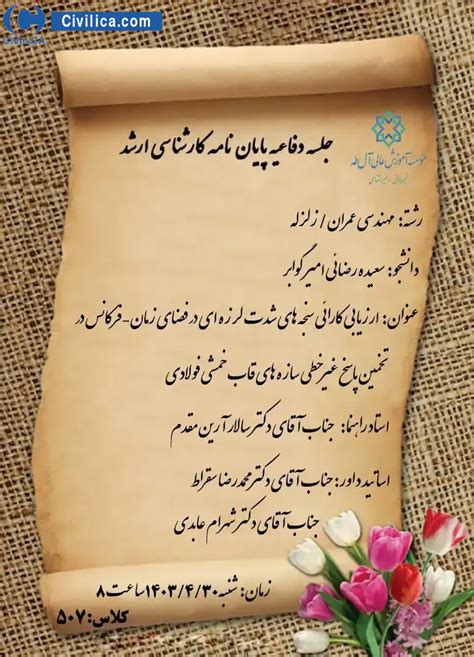 Civilica.com
جلسه دفاعیه پایان نامه کارشناسی ارشد
مؤسسه آموزش عالی آل طه
رشته: مهندسی عمران / زلزله
دانشجو: سعیده رضائی امیرگوابر
عنوان: ارزیابی کارائی سنجه های شدت لرزه ای در فضای زمان-فرکانس در
تخمین پاسخ غیرخطی سازه های قاب خمشی فولادی
استاد راهنما: جناب آقای دکتر سالار آرین مقدم
اساتید داور: جناب آقای دکتر محمدرضا سقراط
جناب آقای دکتر شهرام عابدی
زمان: شنبه ۱۴۰۳/۴/۳۰ ساعت ۸
کلاس: ۵۰۷